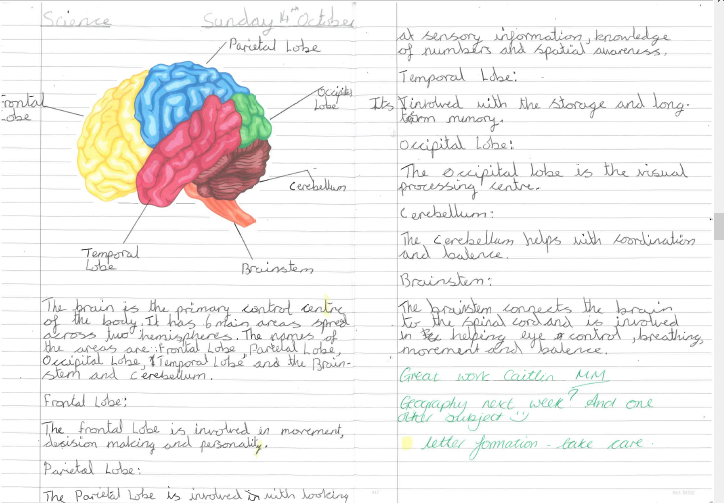 Science
Sunday 4th October
Parietal Lobe
Frontal
Lobe
Occipital
Lobe
Cerebellum
Temporal
Lobe
Brainstem
The brain is the primary control centre
of the body. It has 6 main areas spred
across two hemispheres. The names of
the areas are: Frontal Lobe, Parietal Lobe,
Occipital Lobe, Temporal Lobe and the Brain-
stem and Cerebellum.
Frontal Lobe:
The frontal Lobe is involved in movement,
decision making and personality.
Parietal Lobe:
The Parietal Lobe is involved with looking
at sensory information, knowledge
of numbers and spatial awareness.
Temporal Lobe:
Its involved with the storage and long-
term memory.
Occipital Lobe:
The occipital lobe is the visual
processing centre.
Cerebellum:
The cerebellum helps with coordination
and balence.
Brainstem:
The brainstem connects the brain
to the spinal cord and is involved
in helping eye control, breathing,
movement and balence.
Great work Caitlin MM
Geography next week? And one
other subject
letter formation - take care.